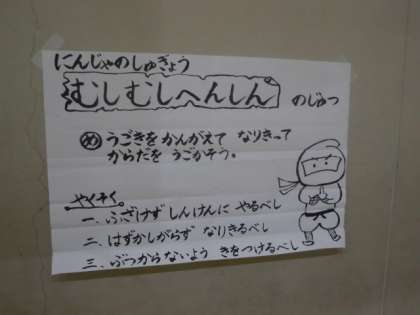 にんじゃのしゅぎょう
むしむしへんしん のじゅつ
め うごきをかんがえて なりきって
からだを うごかそう。
やくそく。
一、ふざけず しんけんに やるべし
二、はずかしがらず なりきるべし
三、ぶつからないよう きをつけるべし